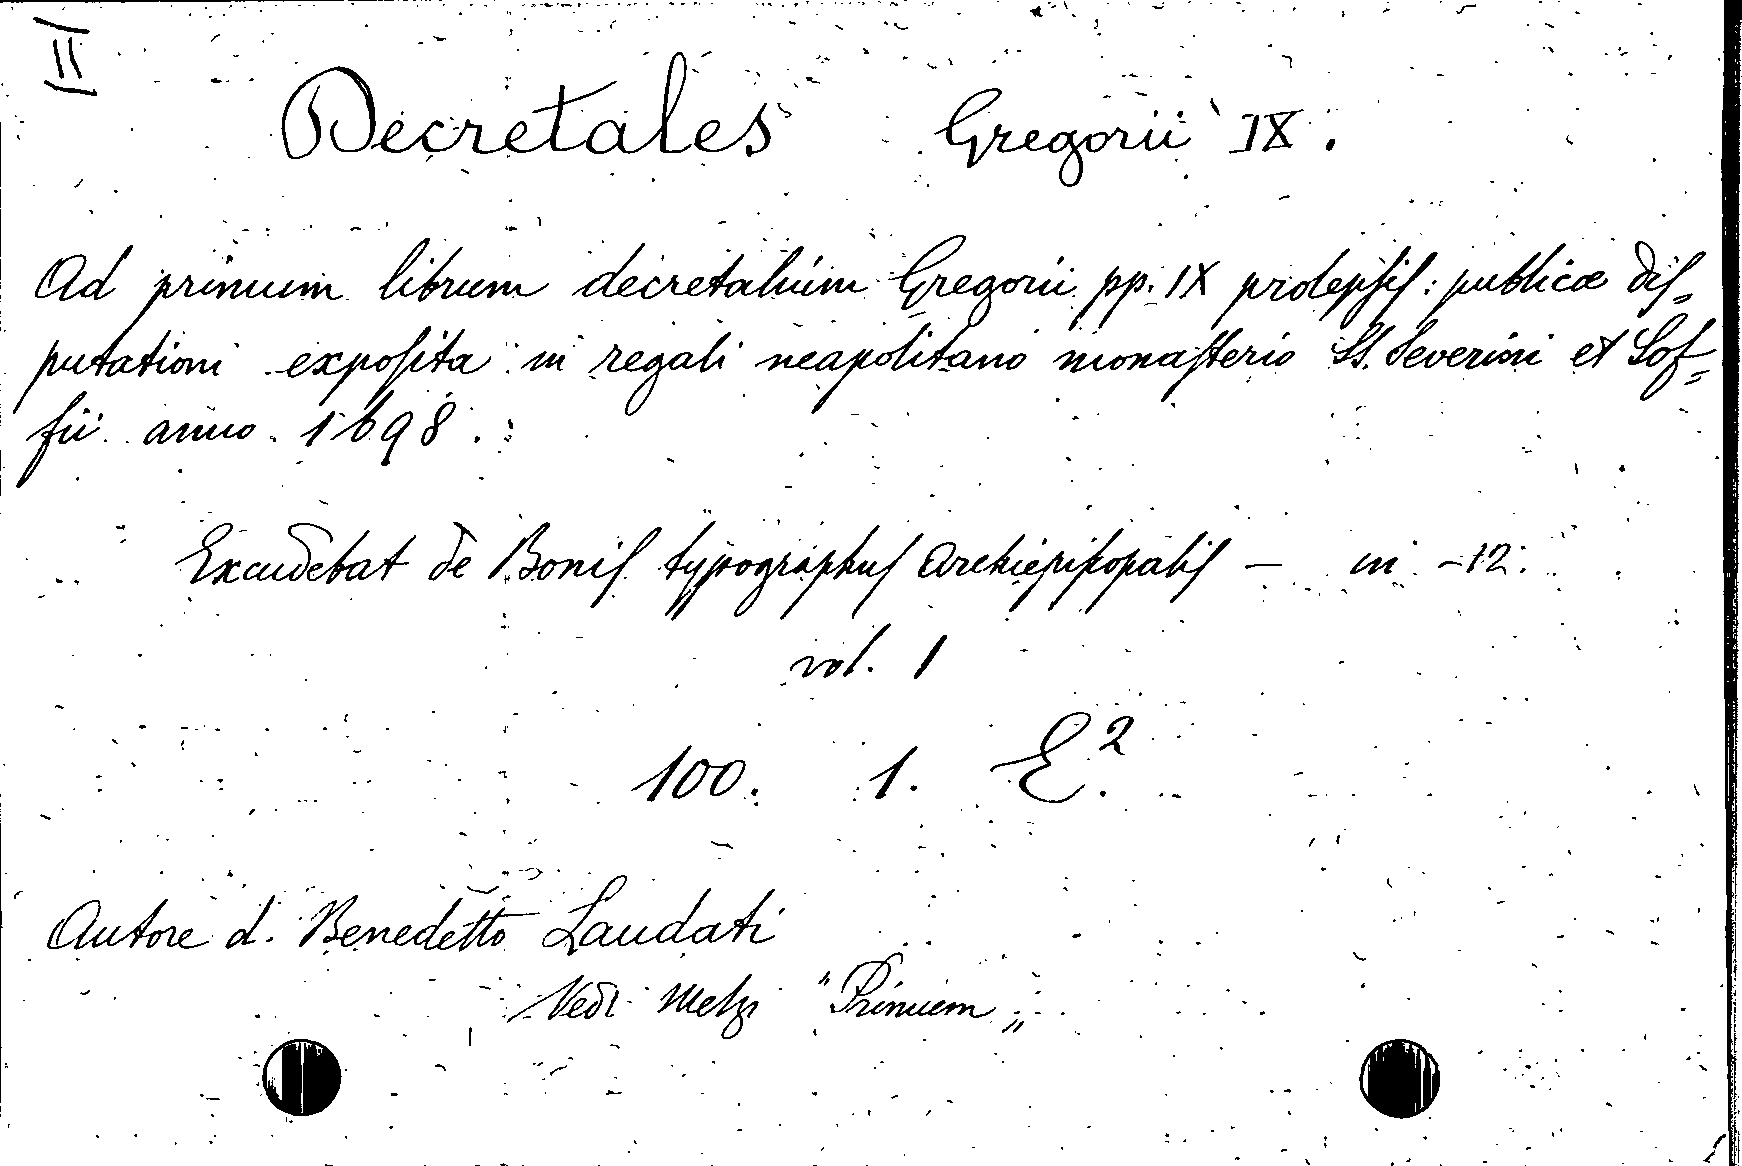 II
Decretales Gregorii IX.
Ad primum librum decretalium Gregorii pp. IX prolepſiſ: publicæ diſ=
putationi expoſita in regali neapolitano monaſterio SS. Severini et Soſ=
ſii anno 1698.
Excudebat de Boniſ typographuſ Archiepiſcopaliſ — in -12.
vol. 1
100. 1. E².
Autore d. Benedetto Laudati
Vedi Melzi "Primum„